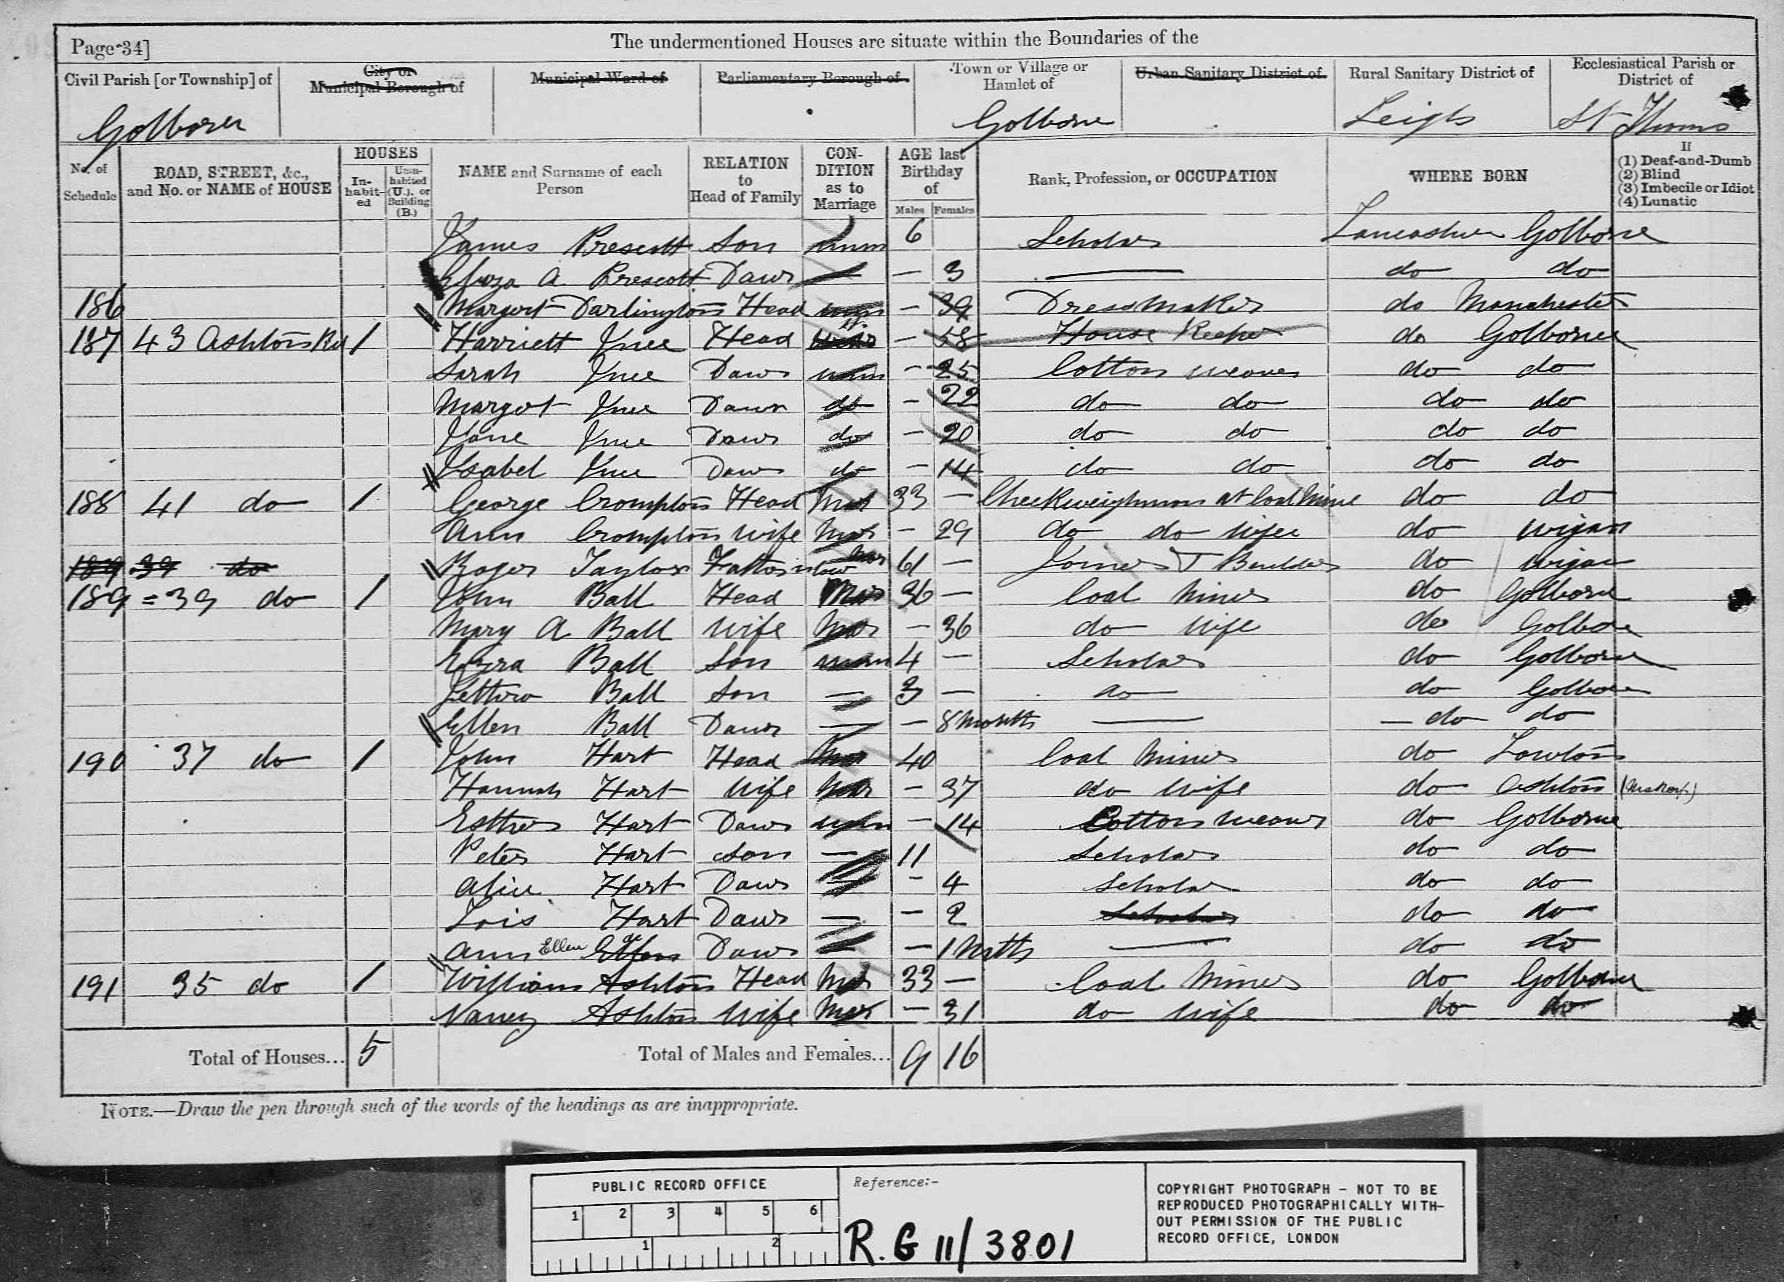 Page 34]
The undermentioned Houses are situate within the Boundaries of the
Civil Parish [or Township] of
City or Municipal Borough of
Municipal Ward of
Parliamentary Borough of
Town or Village or Hamlet of
Urban Sanitary District of
Rural Sanitary District of
Ecclesiastical Parish or District of
Golborne Golborne Leigh St Thomas
No. of Schedule
ROAD, STREET, &c., and No. or NAME of HOUSE
HOUSES
In-habit-ed
Unin-habited (U.), or Building (B.)
NAME and Surname of each Person
RELATION to Head of Family
CON-DITION as to Marriage
AGE last Birthday of
Males Females
Rank, Profession, or OCCUPATION
WHERE BORN
If
(1) Deaf-and-Dumb
(2) Blind
(3) Imbecile or Idiot
(4) Lunatic
James Prescott Son unm 6 Scholar Lancashire Golborne
Eliza A Prescott Daur — 3 — do do
186 Margert Darlington Head unm — 39 Dressmaker do Manchester
187 43 Ashton Rd 1 Harriett Head — 58 House Keeper do Golborne
Sarah Daur unm — 25 Cotton weaver do do
Margert Daur do — 22 do do do do
Jane Daur do — 20 do do do do
Isabel Daur do — 14 do do do do
188 41 do 1 George Crompton Head Mar 33 — Checkweighman at Coal Mine do do
Ann Crompton Wife Mar — 29 do do Wife do Wigan
189 39 do Roger Taylor Father in law 61 — Joiner & Builder do Wigan
189 = 39 do 1 John Ball Head Mar 36 — Coal Miner do Golborne
Mary A Ball Wife Mar — 36 do Wife do Golborne
Ezra Ball Son unm 4 — Scholar do Golborne
Jethro Ball Son — 3 — do do Golborne
Ellen Ball Daur — — 8 Months — do do
190 37 do 1 John Hart Head Mar 40 Coal Miner do Lowton
Hannah Hart Wife Mar — 37 do Wife do Ashton
Esther Hart Daur unm — 14 Cotton weaver do Golborne
Peter Hart Son — 11 Scholar do do
Alice Hart Daur — — 4 Scholar do do
Lois Hart Daur — — 2 Scholar do do
Ann Ellen Daur — — 1 Mnth — do do
191 35 do 1 William Ashton Head Mar 33 — Coal Miner do Golborne
Nancy Ashton Wife Mar — 31 do Wife do do
Total of Houses... 5 Total of Males and Females... 9 16
NOTE.—Draw the pen through such of the words of the headings as are inappropriate.
PUBLIC RECORD OFFICE
1 2 3 4 5 6
1 2
Reference:-
R.G 11/3801
COPYRIGHT PHOTOGRAPH - NOT TO BE
REPRODUCED PHOTOGRAPHICALLY WITH-
OUT PERMISSION OF THE PUBLIC
RECORD OFFICE, LONDON